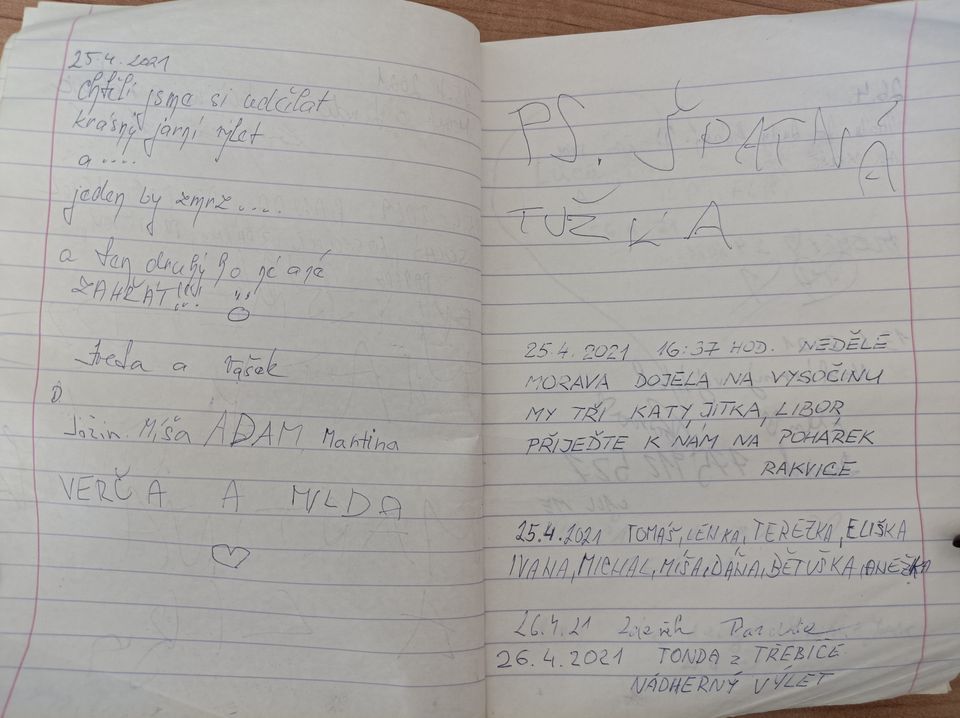 25.4.2021
Chtěli jsme si udělat
krásný jarní výlet
a ....
jeden by zmrz .....
a ten druhý ho
ZAHŘÁT!!!
a Vašek
Jožin. Míša ADAM, Martina
VERČA A MILDA
PS. ŠPATNÁ
TUŽKA
25.4.2021 16:37 HOD. NEDĚLE
MORAVA DOJELA NA VYSOČINU
MY TŘI KATY, JITKA, LIBOR
PŘIJEĎTE K NÁM NA POHÁREK
RAKVICE
25.4.2021 TOMÁŠ, LENKA, TEREZKA, ELIŠKA
IVANA, MICHAL, MÍŠA, DÁŇA, BĚTUŠKA, ANEŽKA
26.4.21
26.4.2021 TONDA z TŘEBÍČE
NÁDHERNÝ VÝLET